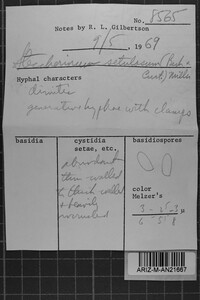 No. 8565
Notes by R. L. Gilbertson
9/5, 1969
Steccherinum setulosum (Berk &
Curt) Miller
Hyphal characters
dimitic
generative hyphae with clamps
basidia
cystidia
setae, etc.
basidiospores
abundant
thin walled
to thick walled
& heavily
incrusted
color
Melzer's
μ
ARIZ-M-AN21667